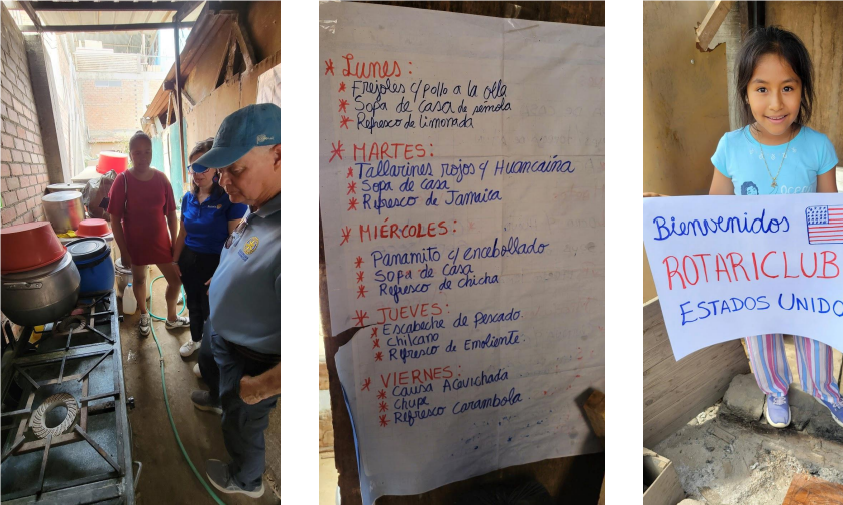 * Lunes:
* Frejoles c/pollo a la olla
* Sopa de casa de sémola
* Refresco de limonada
* MARTES:
* Tallarines rojos y Huancaina
* Sopa de casa
* Refresco de Jamaica
* MIÉRCOLES:
* Panamito c/ encebollado
* Sopa de casa
* Refresco de chicha
* JUEVES:
* Escabeche de Pescado
* Chilcano
* Refresco de Emoliente
* VIERNES:
* Causa Acevichada
* Chupe
* Refresco Carambola
Bienvenidos
ROTARICLUB
ESTADOS UNIDO